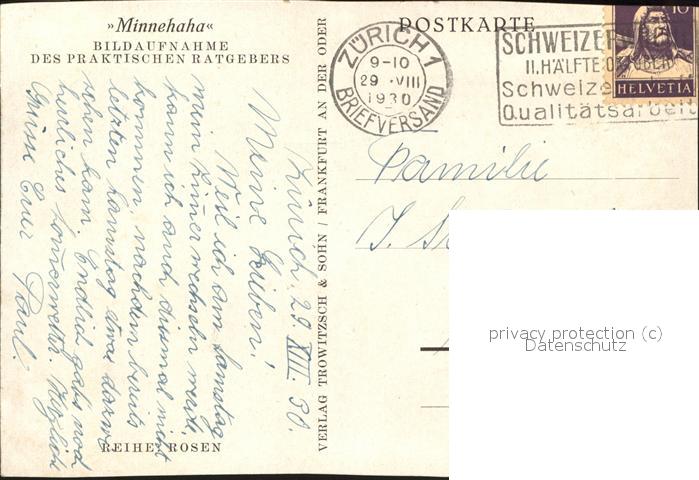 »Minnehaha«
BILDAUFNAHME
DES PRAKTISCHEN RATGEBERS
Zürich, 29. VIII. 30.
Meine Lieben!
Weil ich am Samstag
mein Zimmer wechseln werde,
kann ich auch diesmal nicht
kommen, nachdem bereits
letzten Samstag etwas
kam. Endlich gabs noch
herrliches Sommerwetter. Herzliche
Grüsse Euer Paul.
REIHE: ROSEN
VERLAG TROWITZSCH & SOHN / FRANKFURT AN DER ODER
POSTKARTE
ZÜRICH 1
9-10
29. VIII
1930
BRIEFVERSAND
SCHWEIZER
II. HÄLFTE OKTOBER
Schweize
Qualitätsarbeit
10
HELVETIA
Familie
J.
privacy protection (c)
Datenschutz